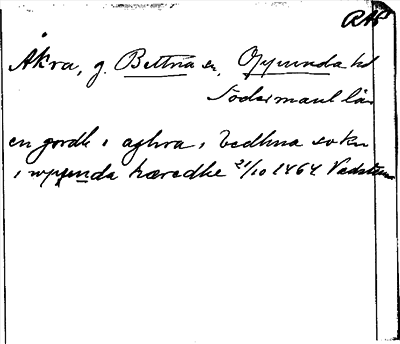 RAp
Åkra, g. Bettna sn, Oppunda hd
Södermanl län
en gordh i aghra i bedhna sokn
i uppunda hæredhe 21/10 1464 Vadstena